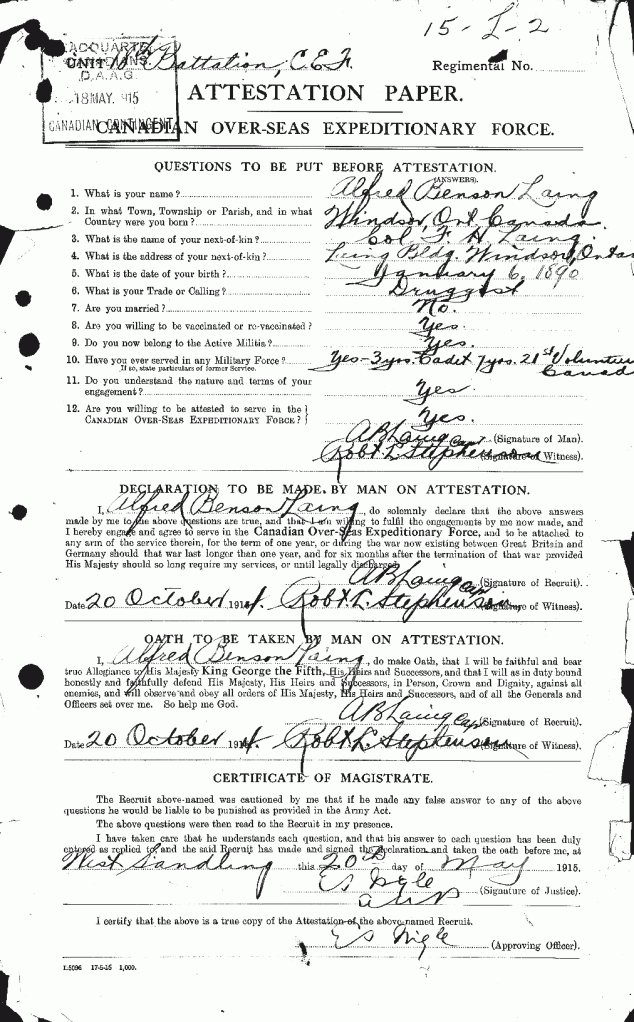 15-L-2
UNIT 18th Battalion, C.E.F. Regimental No.
18 MAY. 915
D.A.A.G
ATTESTATION PAPER.
CANADIAN CONTINGENT
CANADIAN OVER-SEAS EXPEDITIONARY FORCE.
QUESTIONS TO BE PUT BEFORE ATTESTATION.
(ANSWERS).
1. What is your name? Alfred Benson Laing
2. In what Town, Township or Parish, and in what Country were you born? Windsor, Ont. Canada.
3. What is the name of your next-of-kin? Col. F. H. Laing.
4. What is the address of your next-of-kin? Laing Bldg. Windsor, Ontar
5. What is the date of your birth? January 6, 1890
6. What is your Trade or Calling? Druggest
7. Are you married? No.
8. Are you willing to be vaccinated or re-vaccinated? Yes.
9. Do you now belong to the Active Militia? Yes.
10. Have you ever served in any Military Force? Yes-3yrs. Cadet 7yrs. 21st Volunteer
If so, state particulars of former Service. Canad
11. Do you understand the nature and terms of your engagement? Yes.
12. Are you willing to be attested to serve in the CANADIAN OVER-SEAS EXPEDITIONARY FORCE? Yes.
A B Laing Capt (Signature of Man).
Robt. L. Stephenson (Signature of Witness).
DECLARATION TO BE MADE BY MAN ON ATTESTATION.
I, Alfred Benson Laing, do solemnly declare that the above answers
made by me to the above questions are true, and that I am willing to fulfil the engagements by me now made, and
I hereby engage and agree to serve in the Canadian Over-Seas Expeditionary Force, and to be attached to
any arm of the service therein, for the term of one year, or during the war now existing between Great Britain and
Germany should that war last longer than one year, and for six months after the termination of that war provided
His Majesty should so long require my services, or until legally discharged.
A B Laing Cap (Signature of Recruit).
Date 20 October 1914. Robt. L. Stephenson (Signature of Witness).
OATH TO BE TAKEN BY MAN ON ATTESTATION.
I, Alfred Benson Laing, do make Oath, that I will be faithful and bear
true Allegiance to His Majesty King George the Fifth, His Heirs and Successors, and that I will as in duty bound
honestly and faithfully defend His Majesty, His Heirs and Successors, in Person, Crown and Dignity, against all
enemies, and will observe and obey all orders of His Majesty, His Heirs and Successors, and of all the Generals and
Officers set over me. So help me God.
A B Laing Cap (Signature of Recruit).
Date 20 October 1914. Robt. L. Stephenson (Signature of Witness).
CERTIFICATE OF MAGISTRATE.
The Recruit above-named was cautioned by me that if he made any false answer to any of the above
questions he would be liable to be punished as provided in the Army Act.
The above questions were then read to the Recruit in my presence.
I have taken care that he understands each question, and that his answer to each question has been duly
entered as replied to, and the said Recruit has made and signed the declaration and taken the oath before me, at
West Sandling this 20th day of May 1915.
(Signature of Justice).
I certify that the above is a true copy of the Attestation of the above-named Recruit.
(Approving Officer).
L.5096 17-5-15 1,000.